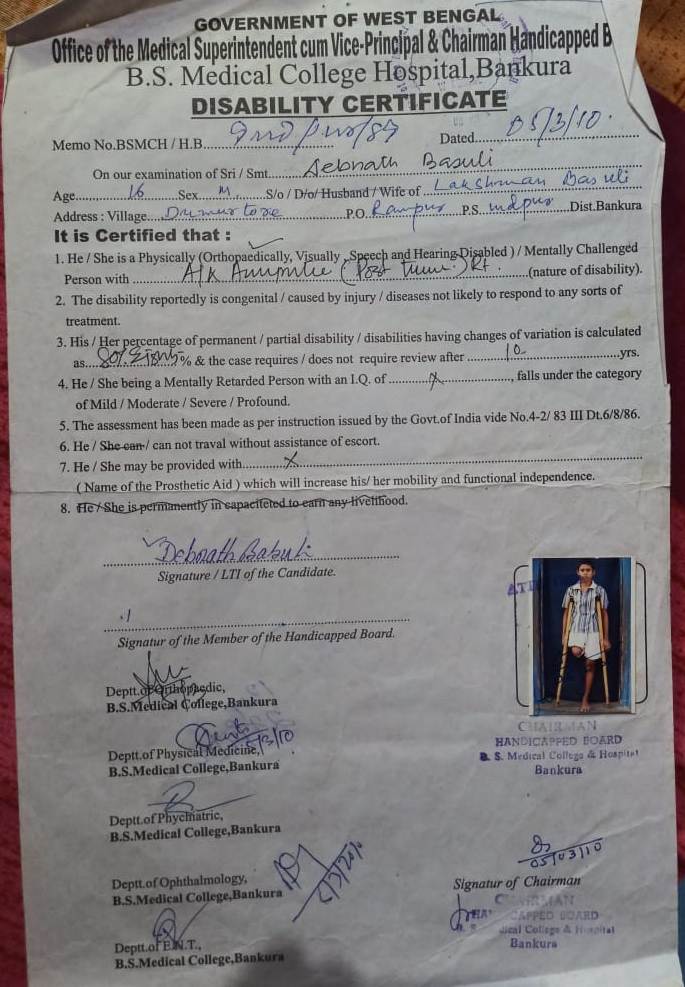 GOVERNMENT OF WEST BENGAL
Office of the Medical Superintendent cum Vice-Principal & Chairman Handicapped B
B.S. Medical College Hospital,Bankura
DISABILITY CERTIFICATE
Memo No.BSMCH / H.B. Dated 05/3/10.
On our examination of Sri / Smt. Debnath Basuli
Age 16 Sex M. S/o / D/o/ Husband / Wife of Lakshman Basuli
Address : Village P.O. Rampur P.S. Indpur Dist.Bankura
It is Certified that :
1. He / She is a Physically (Orthopaedically, Visually ,Speech and Hearing Disabled ) / Mentally Challenged
Person with A/K (Post) Rt. (nature of disability).
2. The disability reportedly is congenital / caused by injury / diseases not likely to respond to any sorts of
treatment.
3. His / Her percentage of permanent / partial disability / disabilities having changes of variation is calculated
as 80% Eighty % & the case requires / does not require review after 10 yrs.
4. He / She being a Mentally Retarded Person with an I.Q. of X, falls under the category
of Mild / Moderate / Severe / Profound.
5. The assessment has been made as per instruction issued by the Govt.of India vide No.4-2/ 83 III Dt.6/8/86.
6. He / She can / can not traval without assistance of escort.
7. He / She may be provided with X
( Name of the Prosthetic Aid ) which will increase his/ her mobility and functional independence.
8. He / She is permanently in capaciteted to earn any livelihood.
Debnath Basuli
Signature / LTI of the Candidate.
Signatur of the Member of the Handicapped Board.
Deptt.of Orthopaedic,
B.S.Medical College,Bankura
CHAIRMAN
HANDICAPPED BOARD
B. S. Medical College & Hospital
Bankura
Deptt.of Physical Medicine, 5/3/10
B.S.Medical College,Bankura
Deptt.of Phychiatric,
B.S.Medical College,Bankura
05/03/10
Deptt.of Ophthalmology,
B.S.Medical College,Bankura
Signatur of Chairman
CHAIRMAN
HANDICAPPED BOARD
Medical College & Hospital
Bankura
Deptt.of E.N.T.,
B.S.Medical College,Bankura